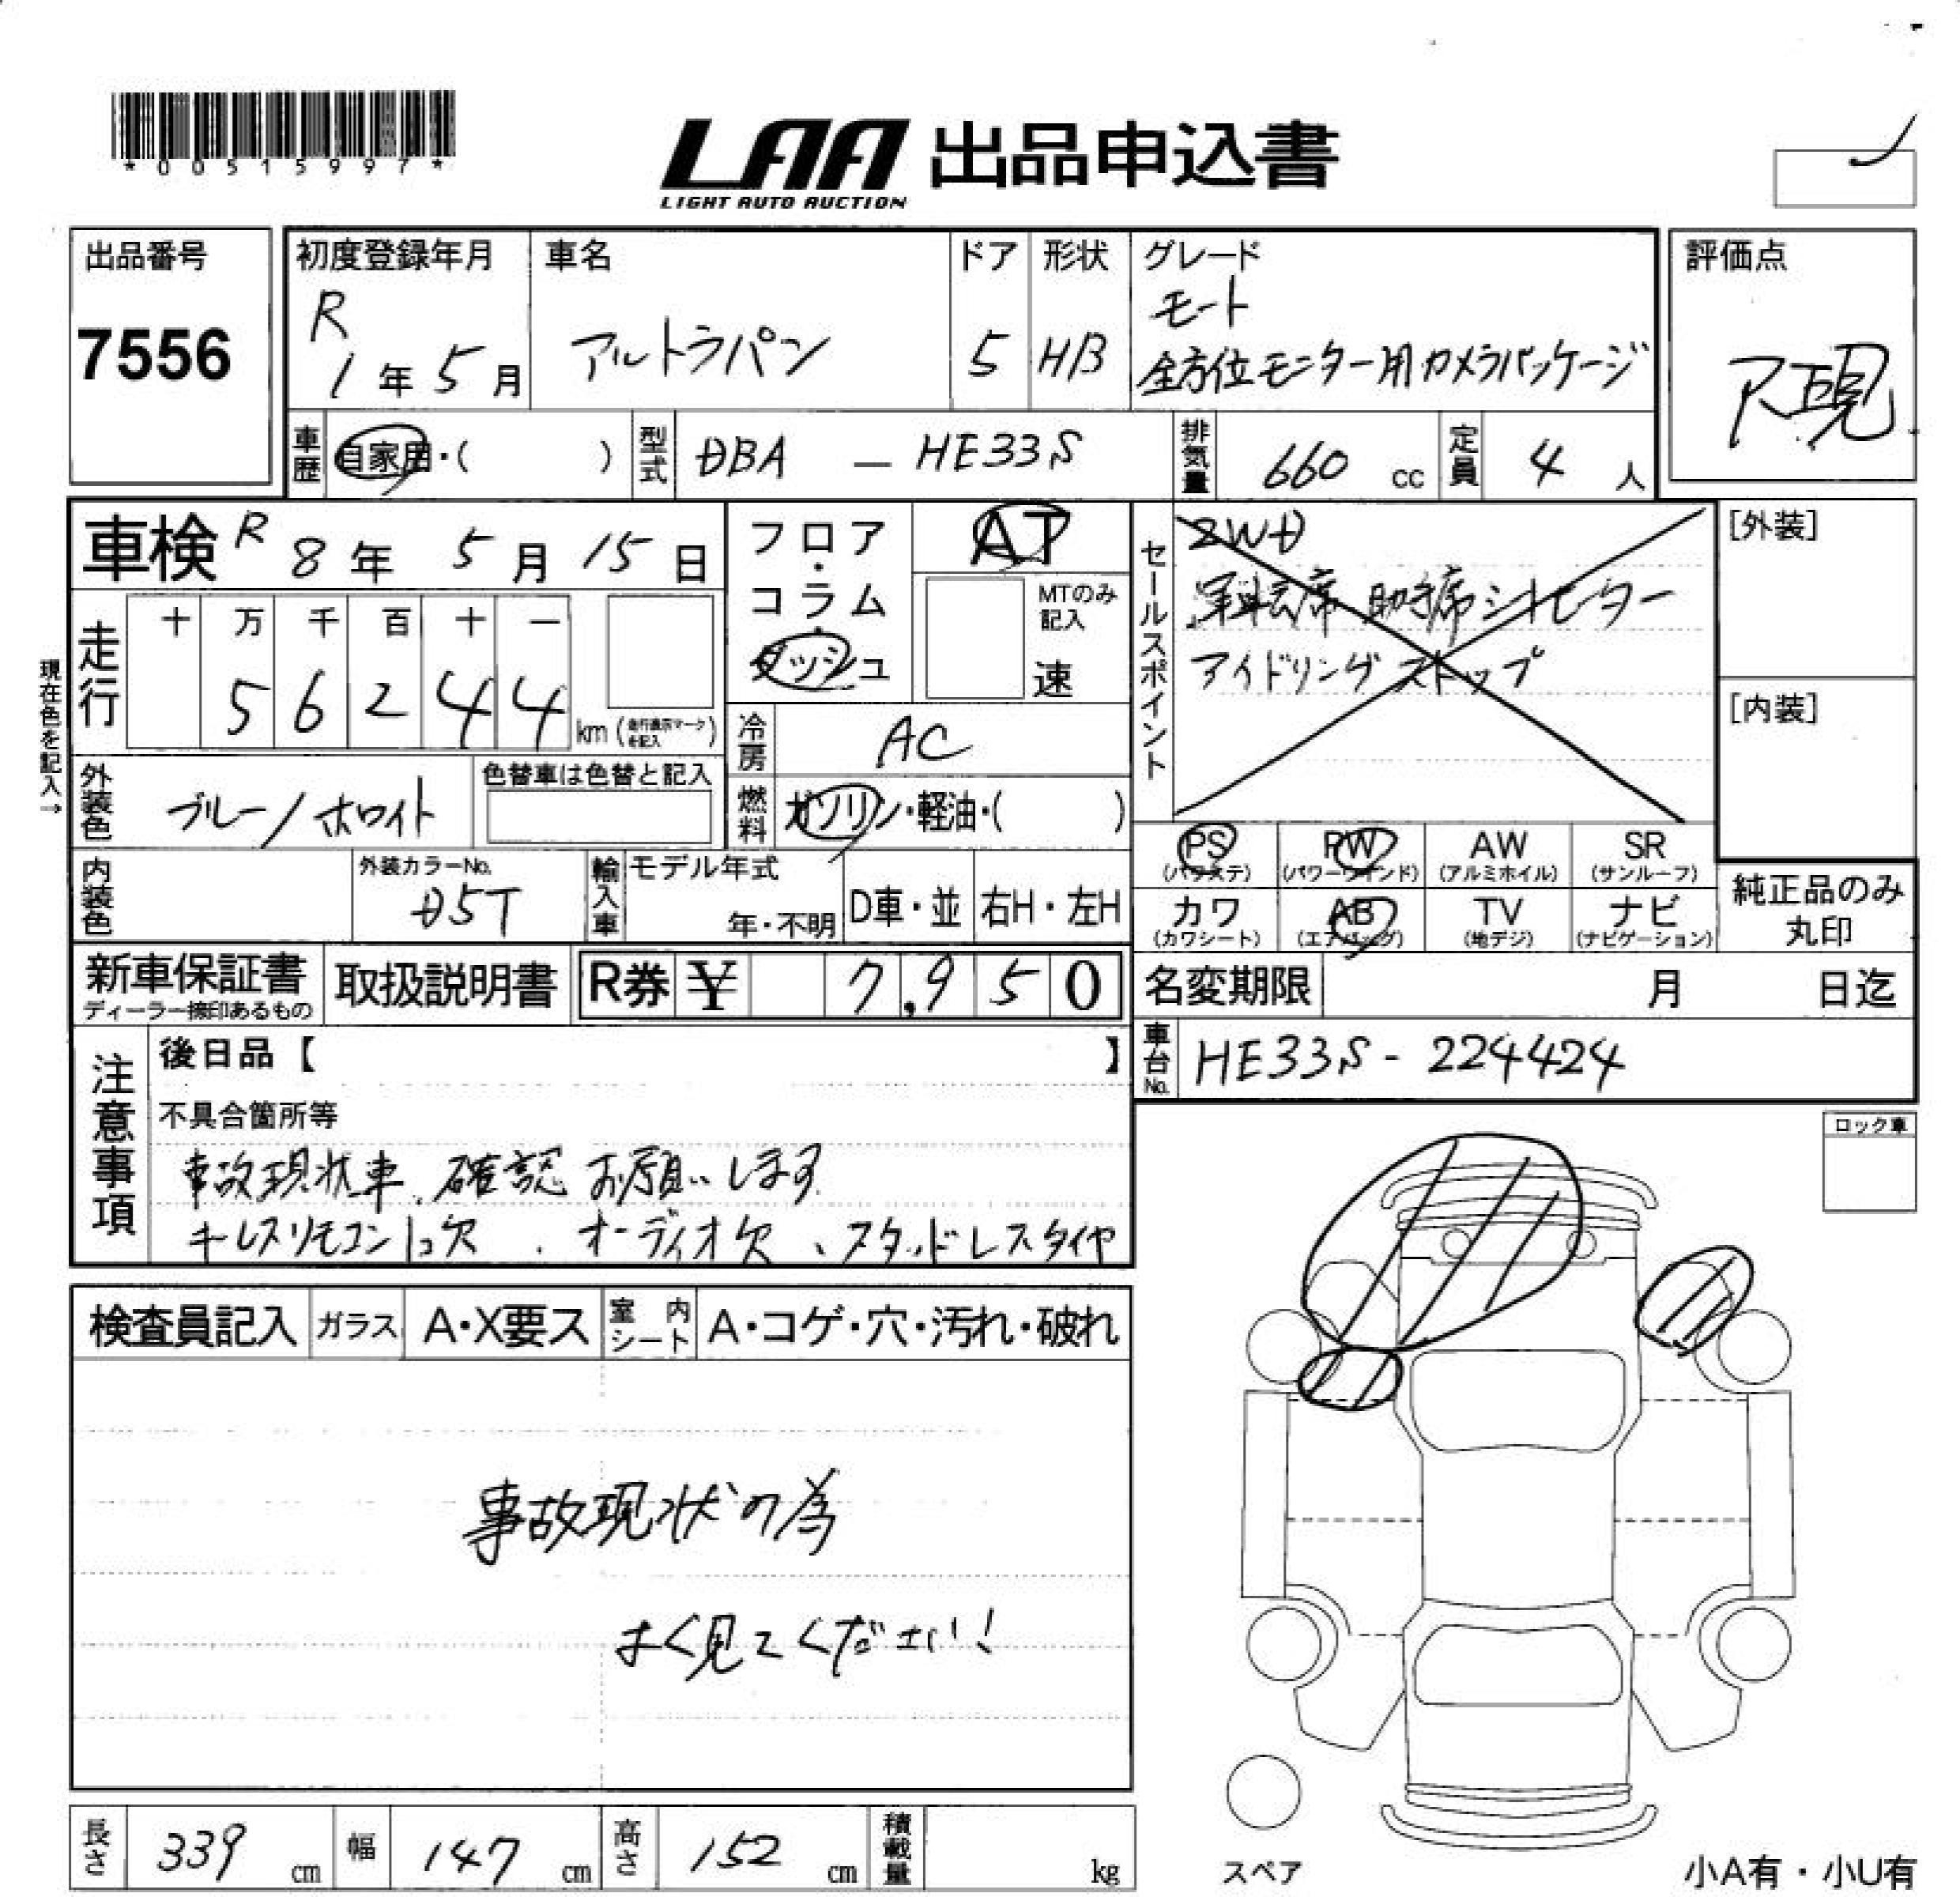 *00515997*
LAA 出品申込書
LIGHT AUTO AUCTION
出品番号
7556
初度登録年月
R
1年5月
車名
アルトラパン
ドア
5
形状
H/B
グレード
モード
全方位モニター用カメラパッケージ
評価点
車歴
自家用・( )
型式
DBA — HE33S
排気量
660 cc
定員
4 人
車検 R 8年 5月 15日
走行
十 万 千 百 十 一
5 6 2 4 4 km
現在色を記入→
フロア・コラム・ダッシュ
AT
MTのみ記入
速
冷房
AC
燃料
ガソリン・軽油・( )
セールスポイント
2WD
運転席 助手席シートヒーター
アイドリングストップ
[外装]
[内装]
外装色
ブルー/ホワイト
色替車は色替と記入
内装色
外装カラーNo.
D5T
輸入車
モデル年式
年・不明
D車・並
右H・左H
PS
(パワステ)
PW
(パワーウインド)
AW
(アルミホイル)
SR
(サンルーフ)
カワ
(カワシート)
AB
(エアバッグ)
TV
(地デジ)
ナビ
(ナビゲーション)
純正品のみ
丸印
新車保証書
ディーラー捺印あるもの
取扱説明書
R券 ¥ 7,950
名変期限 月 日迄
車台No.
HE33S - 224424
注意事項
後日品【 】
不具合箇所等
事故現状車、確認お願いします
キーレスリモコン1コ欠、オーディオ欠、スタッドレスタイヤ
ロック車
検査員記入
ガラス
A・X要ス
室内シート
A・コゲ・穴・汚れ・破れ
事故現状の為
よく見てください!
長さ 339 cm
幅 147 cm
高さ 152 cm
積載量 kg
スペア
小A有・小U有